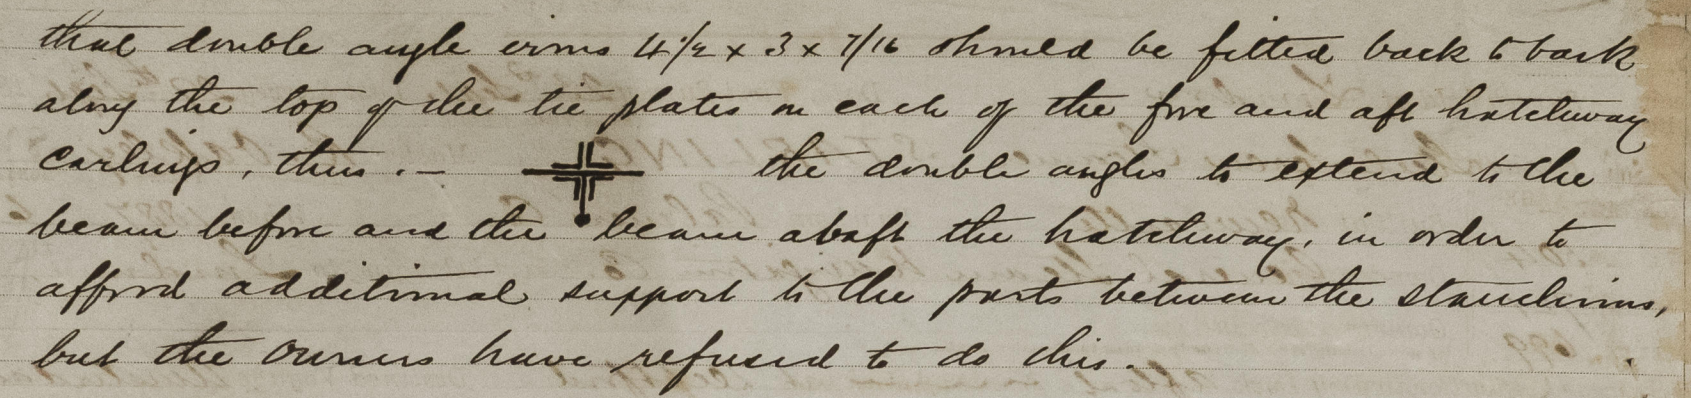 that double angle irons 4 1/2 x 3 x 7/16 should be fitted back to back
along the top of the tie plates on each of the fore and aft hatchway
carlings, thus .— the double angles to extend to the
beam before and the beam abaft the hatchway, in order to
afford additional support to the parts between the stanchions,
but the Owners have refused to do this.